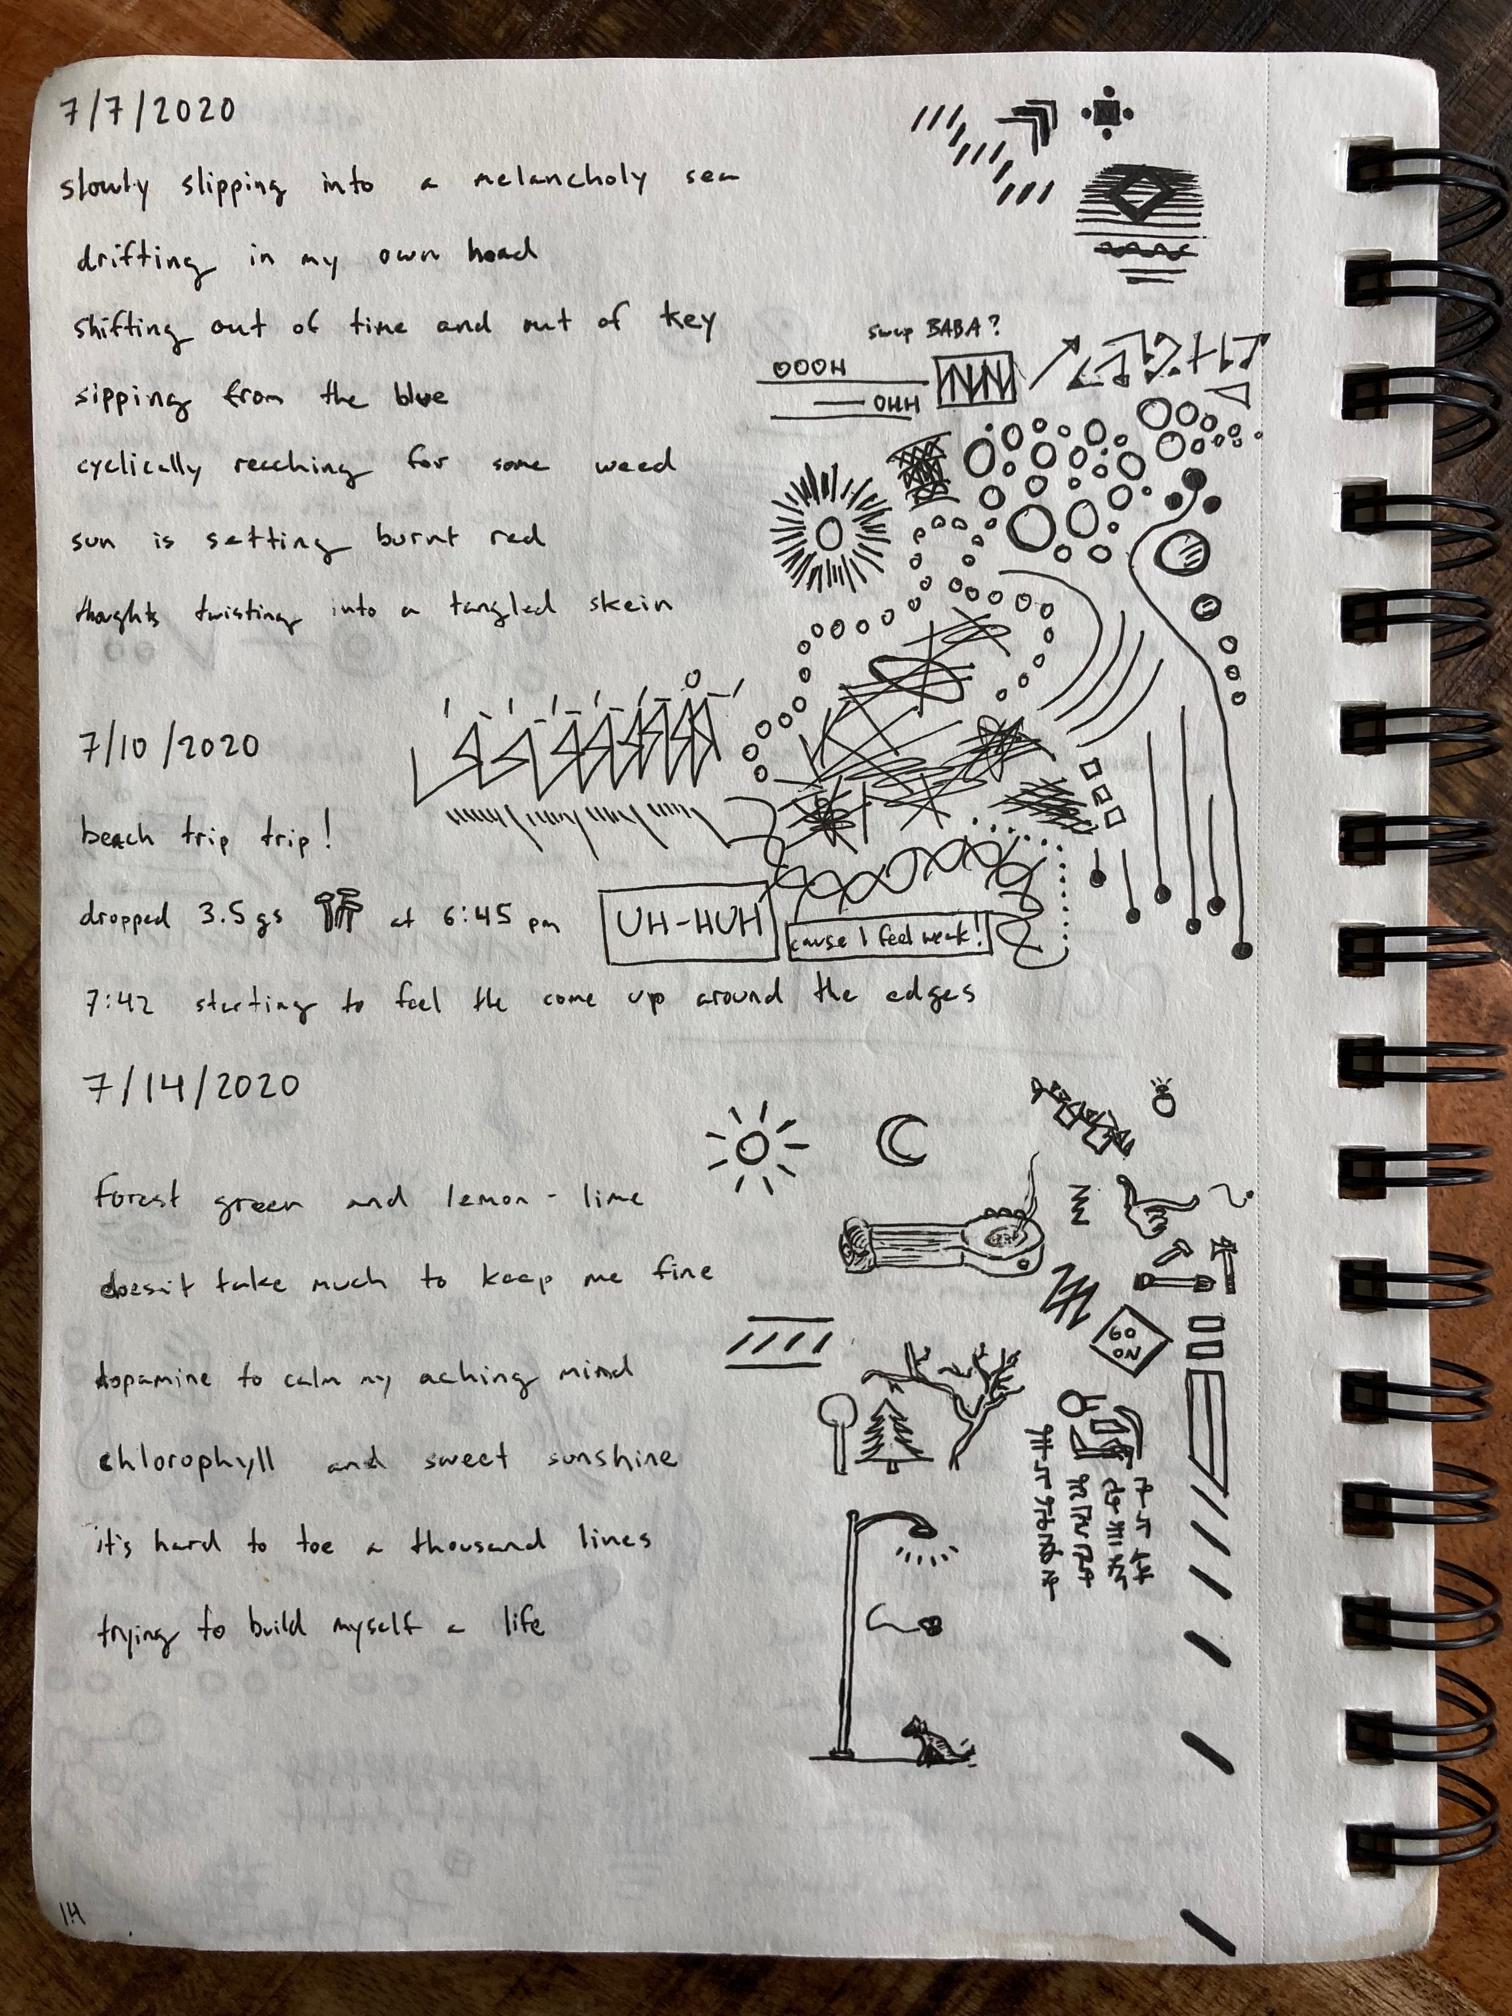 7/7/2020
slowly slipping into a melancholy sea
drifting in my own head
shifting out of time and out of key
swap BABA?
OOOH
OHH
sipping from the blue
cyclically reaching for some weed
sun is setting burnt red
thoughts twisting into a tangled skein
7/10/2020
beach trip trip!
dropped 3.5gs at 6:45 pm
UH-HUH
cause I feel weak!
7:42 starting to feel the come up around the edges
7/14/2020
forest green and lemon-lime
doesn't take much to keep me fine
GO
ON
dopamine to calm my aching mind
chlorophyll and sweet sunshine
it's hard to toe a thousand lines
trying to build myself a life